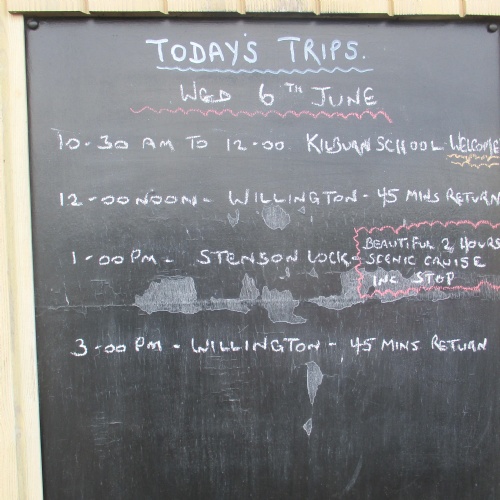 TODAY'S TRIPS.
WED 6TH JUNE
10-30 AM TO 12-00 KILBURN SCHOOL WELCOME
12-00 NOON - WILLINGTON - 45 MINS RETURN
1-00 PM - STENSON LOCK -
BEAUTIFUL 2 HOURS
SCENIC CRUISE
INC STOP
3-00 PM - WILLINGTON - 45 MINS RETURN